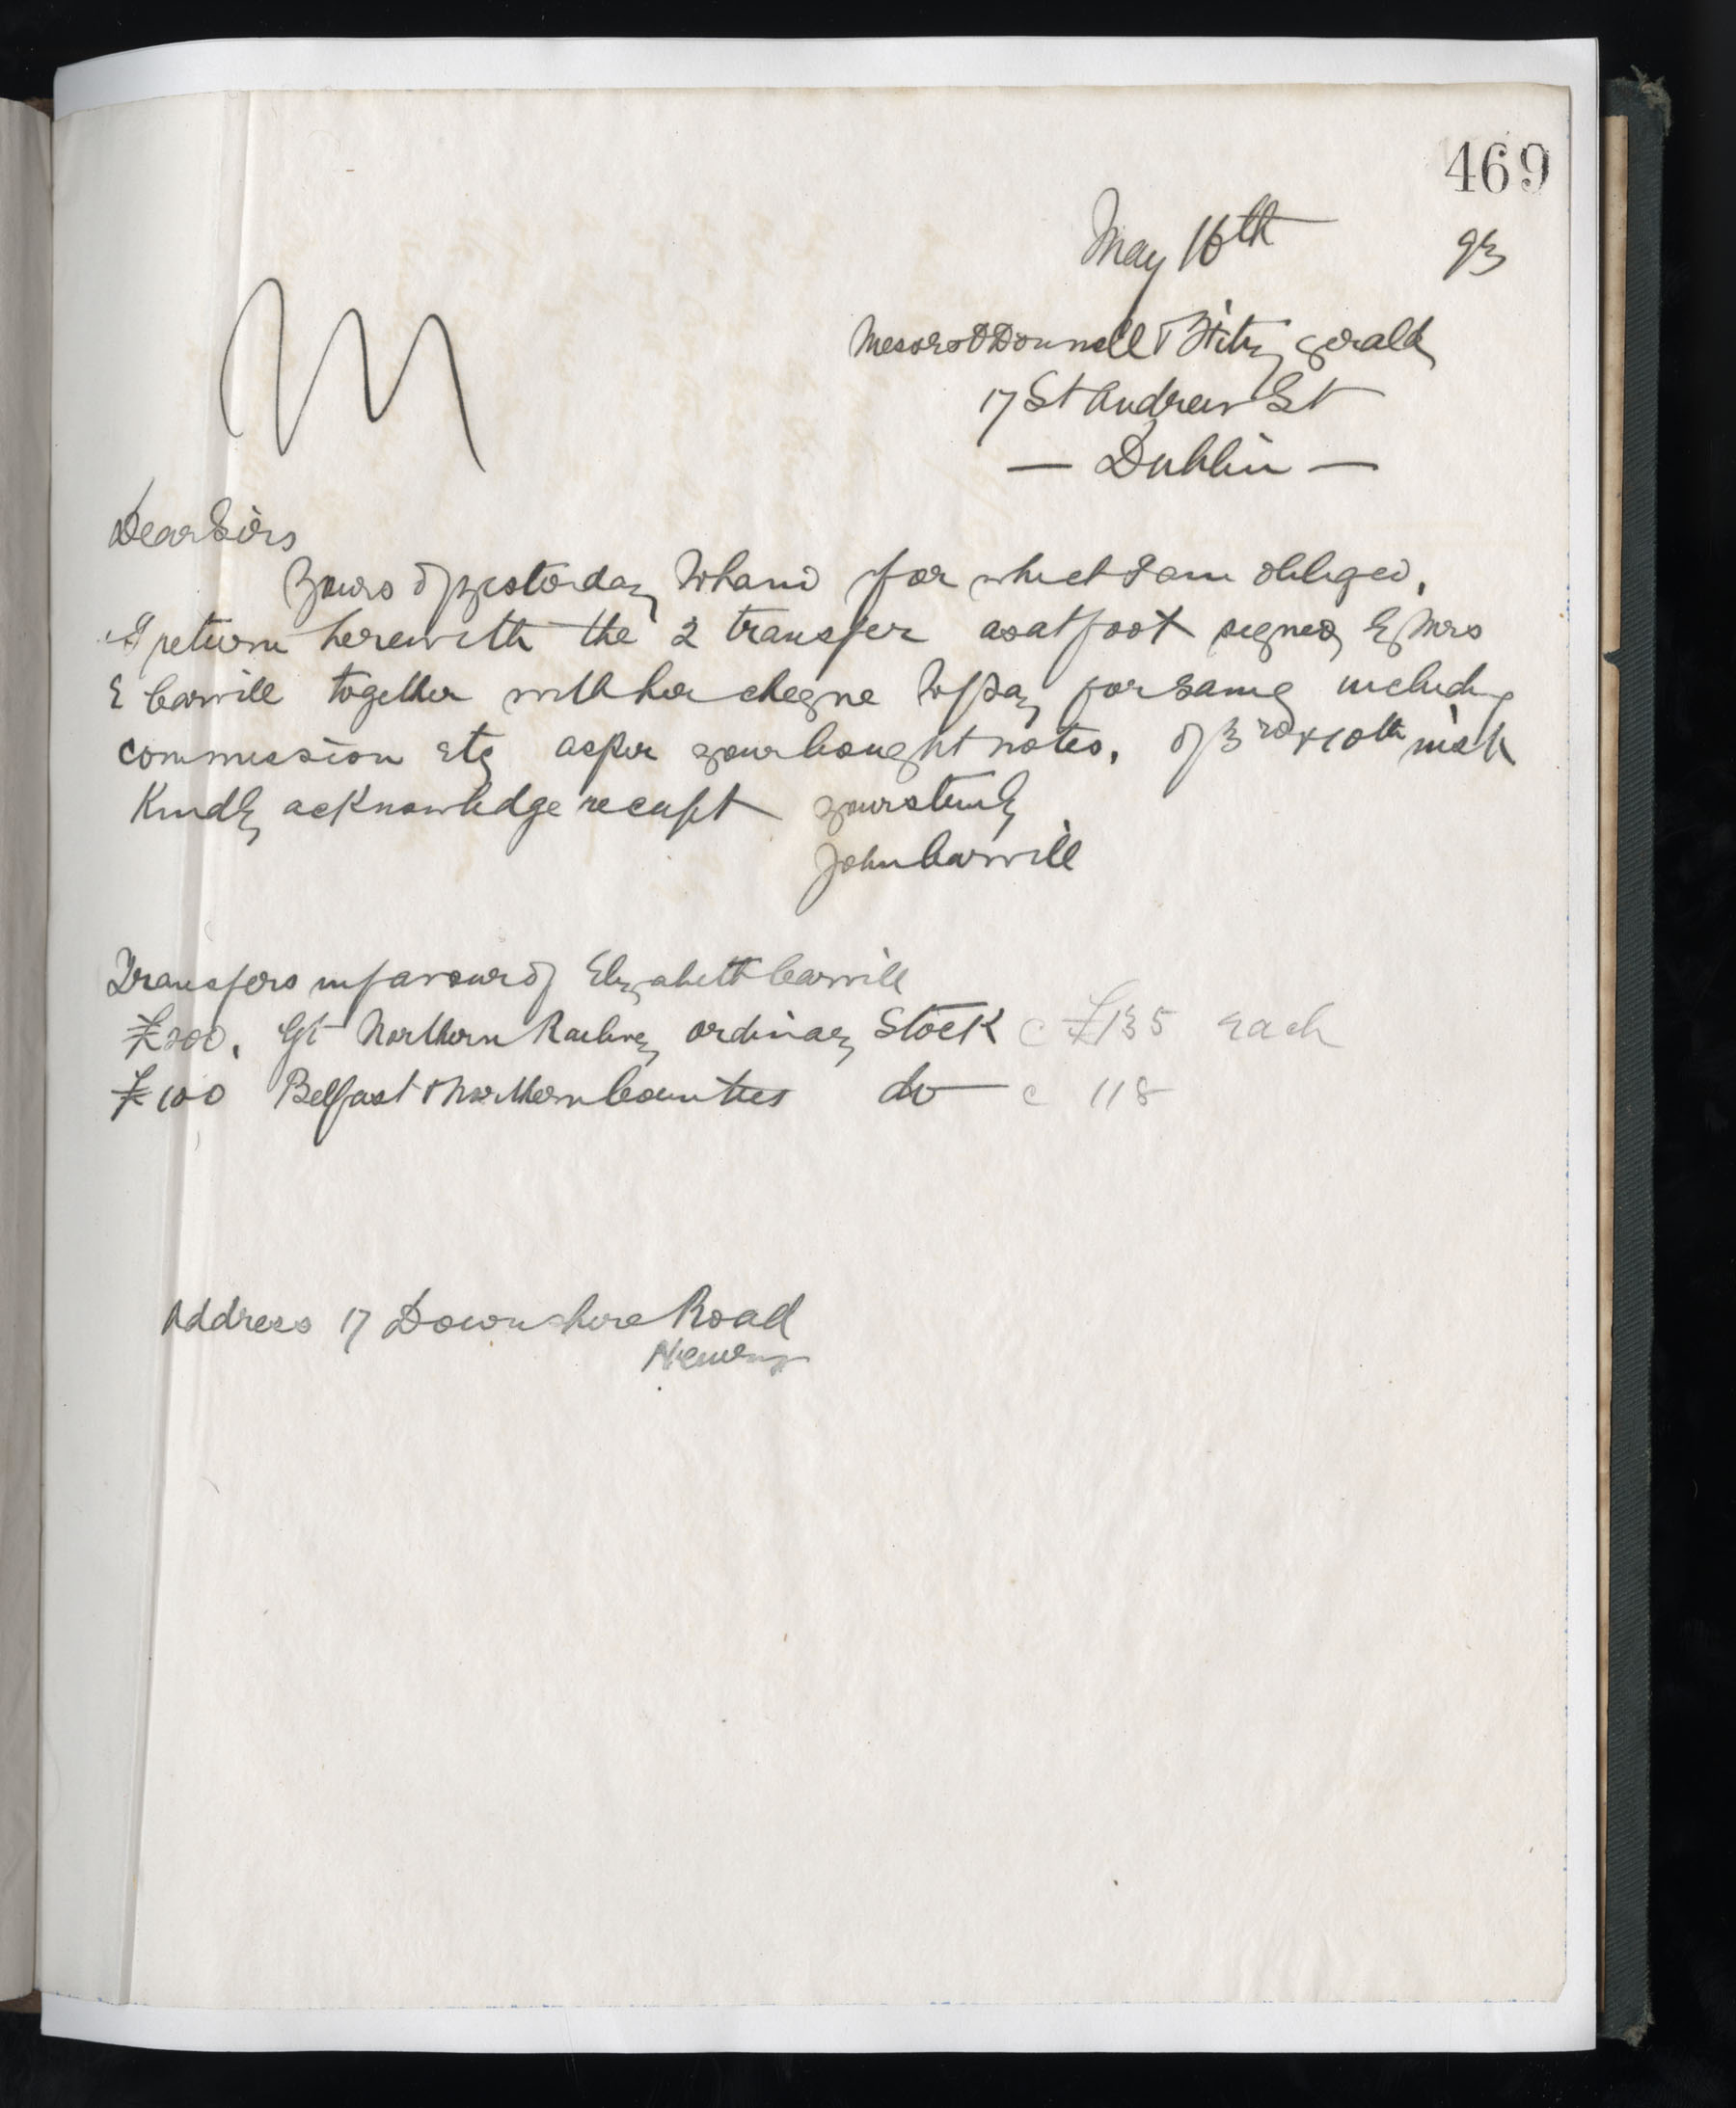 469
May 16th 93
M
Messrs O'Donnell & Fitzgerald
17 St Andrew St
— Dublin —
Dear Sirs
Yours of yesterday to hand for which I am obliged.
I return herewith the 2 transfer as at foot signed by Mrs
E Carvill together with her cheque to pay for same including
commission etc as per your bought notes. of 3rd & 10th inst
Kindly acknowledge receipt yours truly
John Carvill
Transfers in favour of Elizabeth Carvill
£200. Gt Northern Railway ordinary Stock @ £135 each
£100 Belfast & Northern Counties do — @ 118
Address 17 Downshire Road
Newry